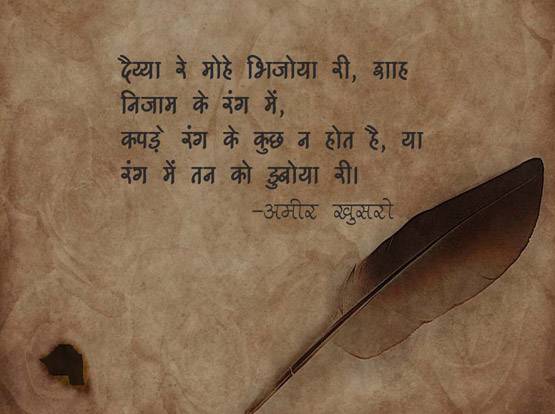 दैय्या रे मोहे भिजोया री, शाह
निजाम के रंग में,
कपड़े रंग के कुछ न होत है, या
रंग में तन को डुबोया री।
-अमीर खुसरो